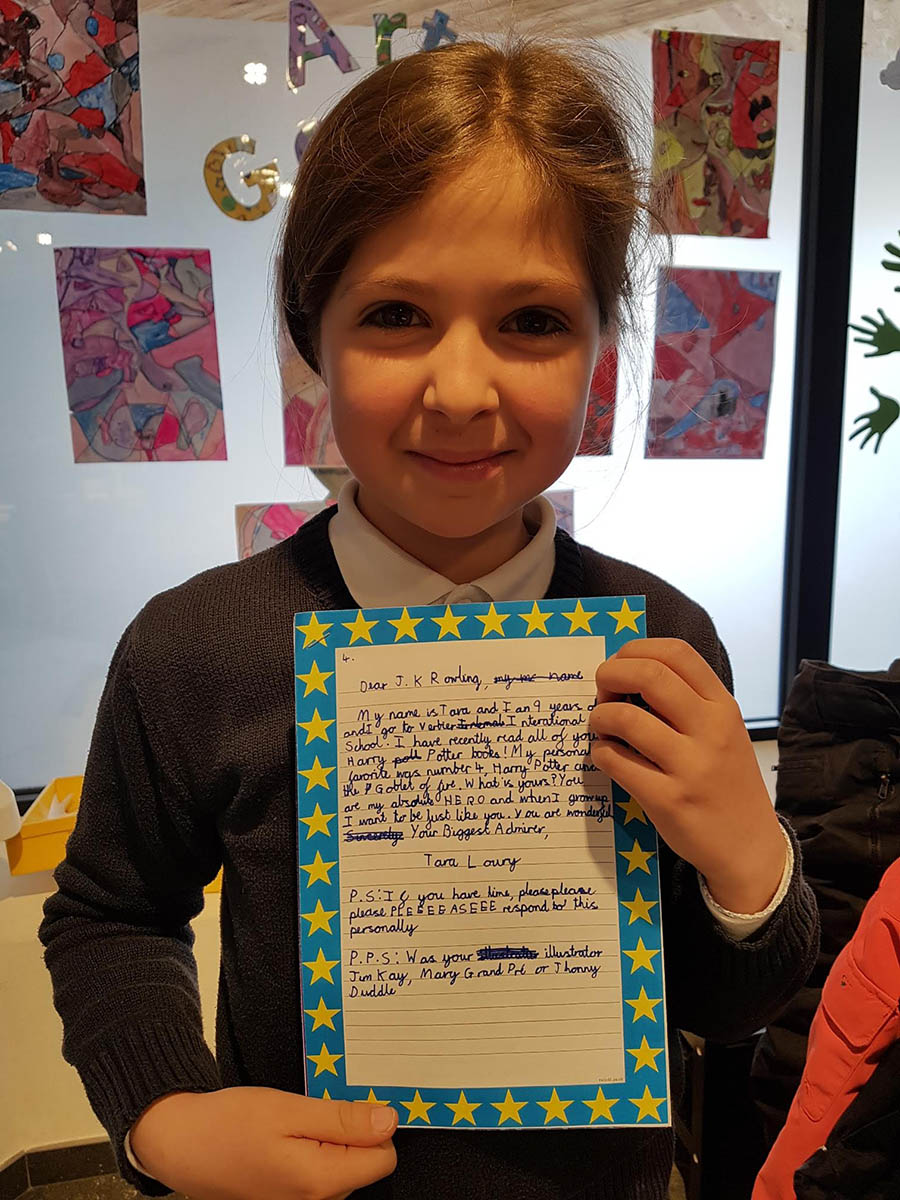 Art
G
4.
Dear J. K Rowling, my name
My name is Tara and I an 9 years
and I go to Verbier Internal Interational
School. I have recently read all of you
Harry pott Potter books! My personal
favorite was number 4, Harry Potter and
the P Goblet of fire. What is yours? You
are my absolute HERO and when I grow up
I want to be just like you. You are wonderful
Sincerely Your Biggest Admirer,
Tara Loury
P.S: If you have time, please please
please PLEEEEASEEE respond to this
personally
P.P.S: Was your illustrator
Jim Kay, Mary Grand Pré or Jhonny
Duddle